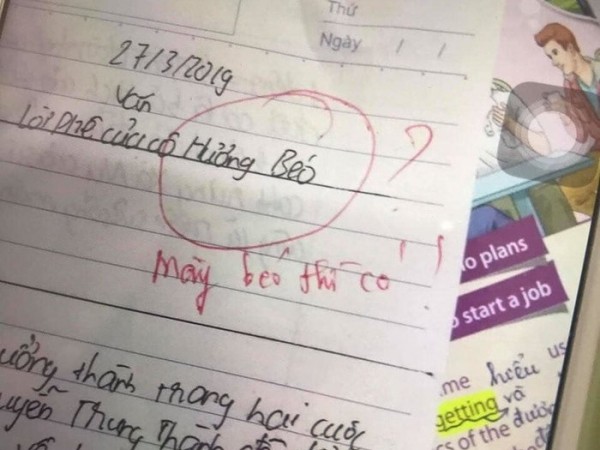 Thứ
Ngày / /
27/3/2019
Văn
Lời phê của cô Hưởng Béo
?
Mày béo thì có !!
thành trong hai cuộc
Trung Thành
o plans
start a job
me hiểu us
getting và
s of the được